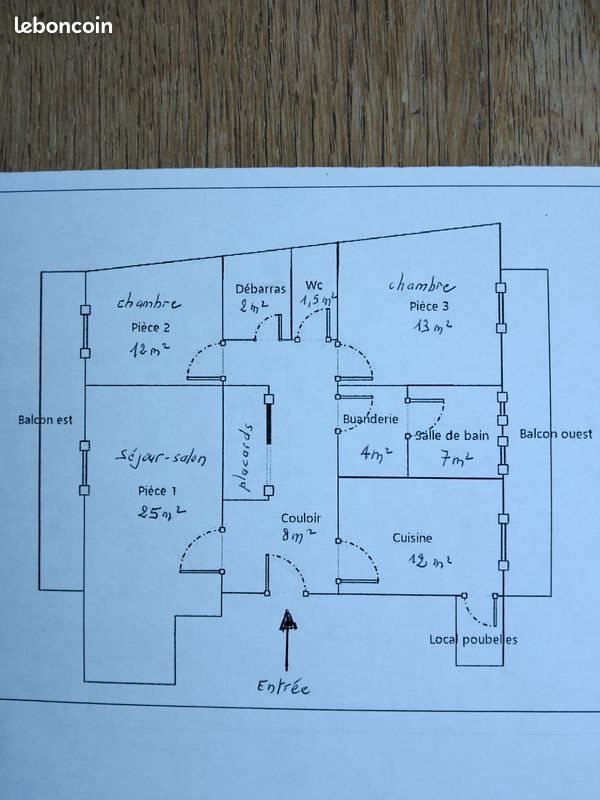 leboncoin
Débarras
2 m²
Wc
1,5 m²
chambre
Pièce 2
12 m²
chambre
Pièce 3
13 m²
Balcon est
séjour-salon
Pièce 1
25 m²
placards
Buanderie
4 m²
Salle de bain
7 m²
Balcon ouest
Couloir
8 m²
Cuisine
12 m²
Local poubelles
Entrée